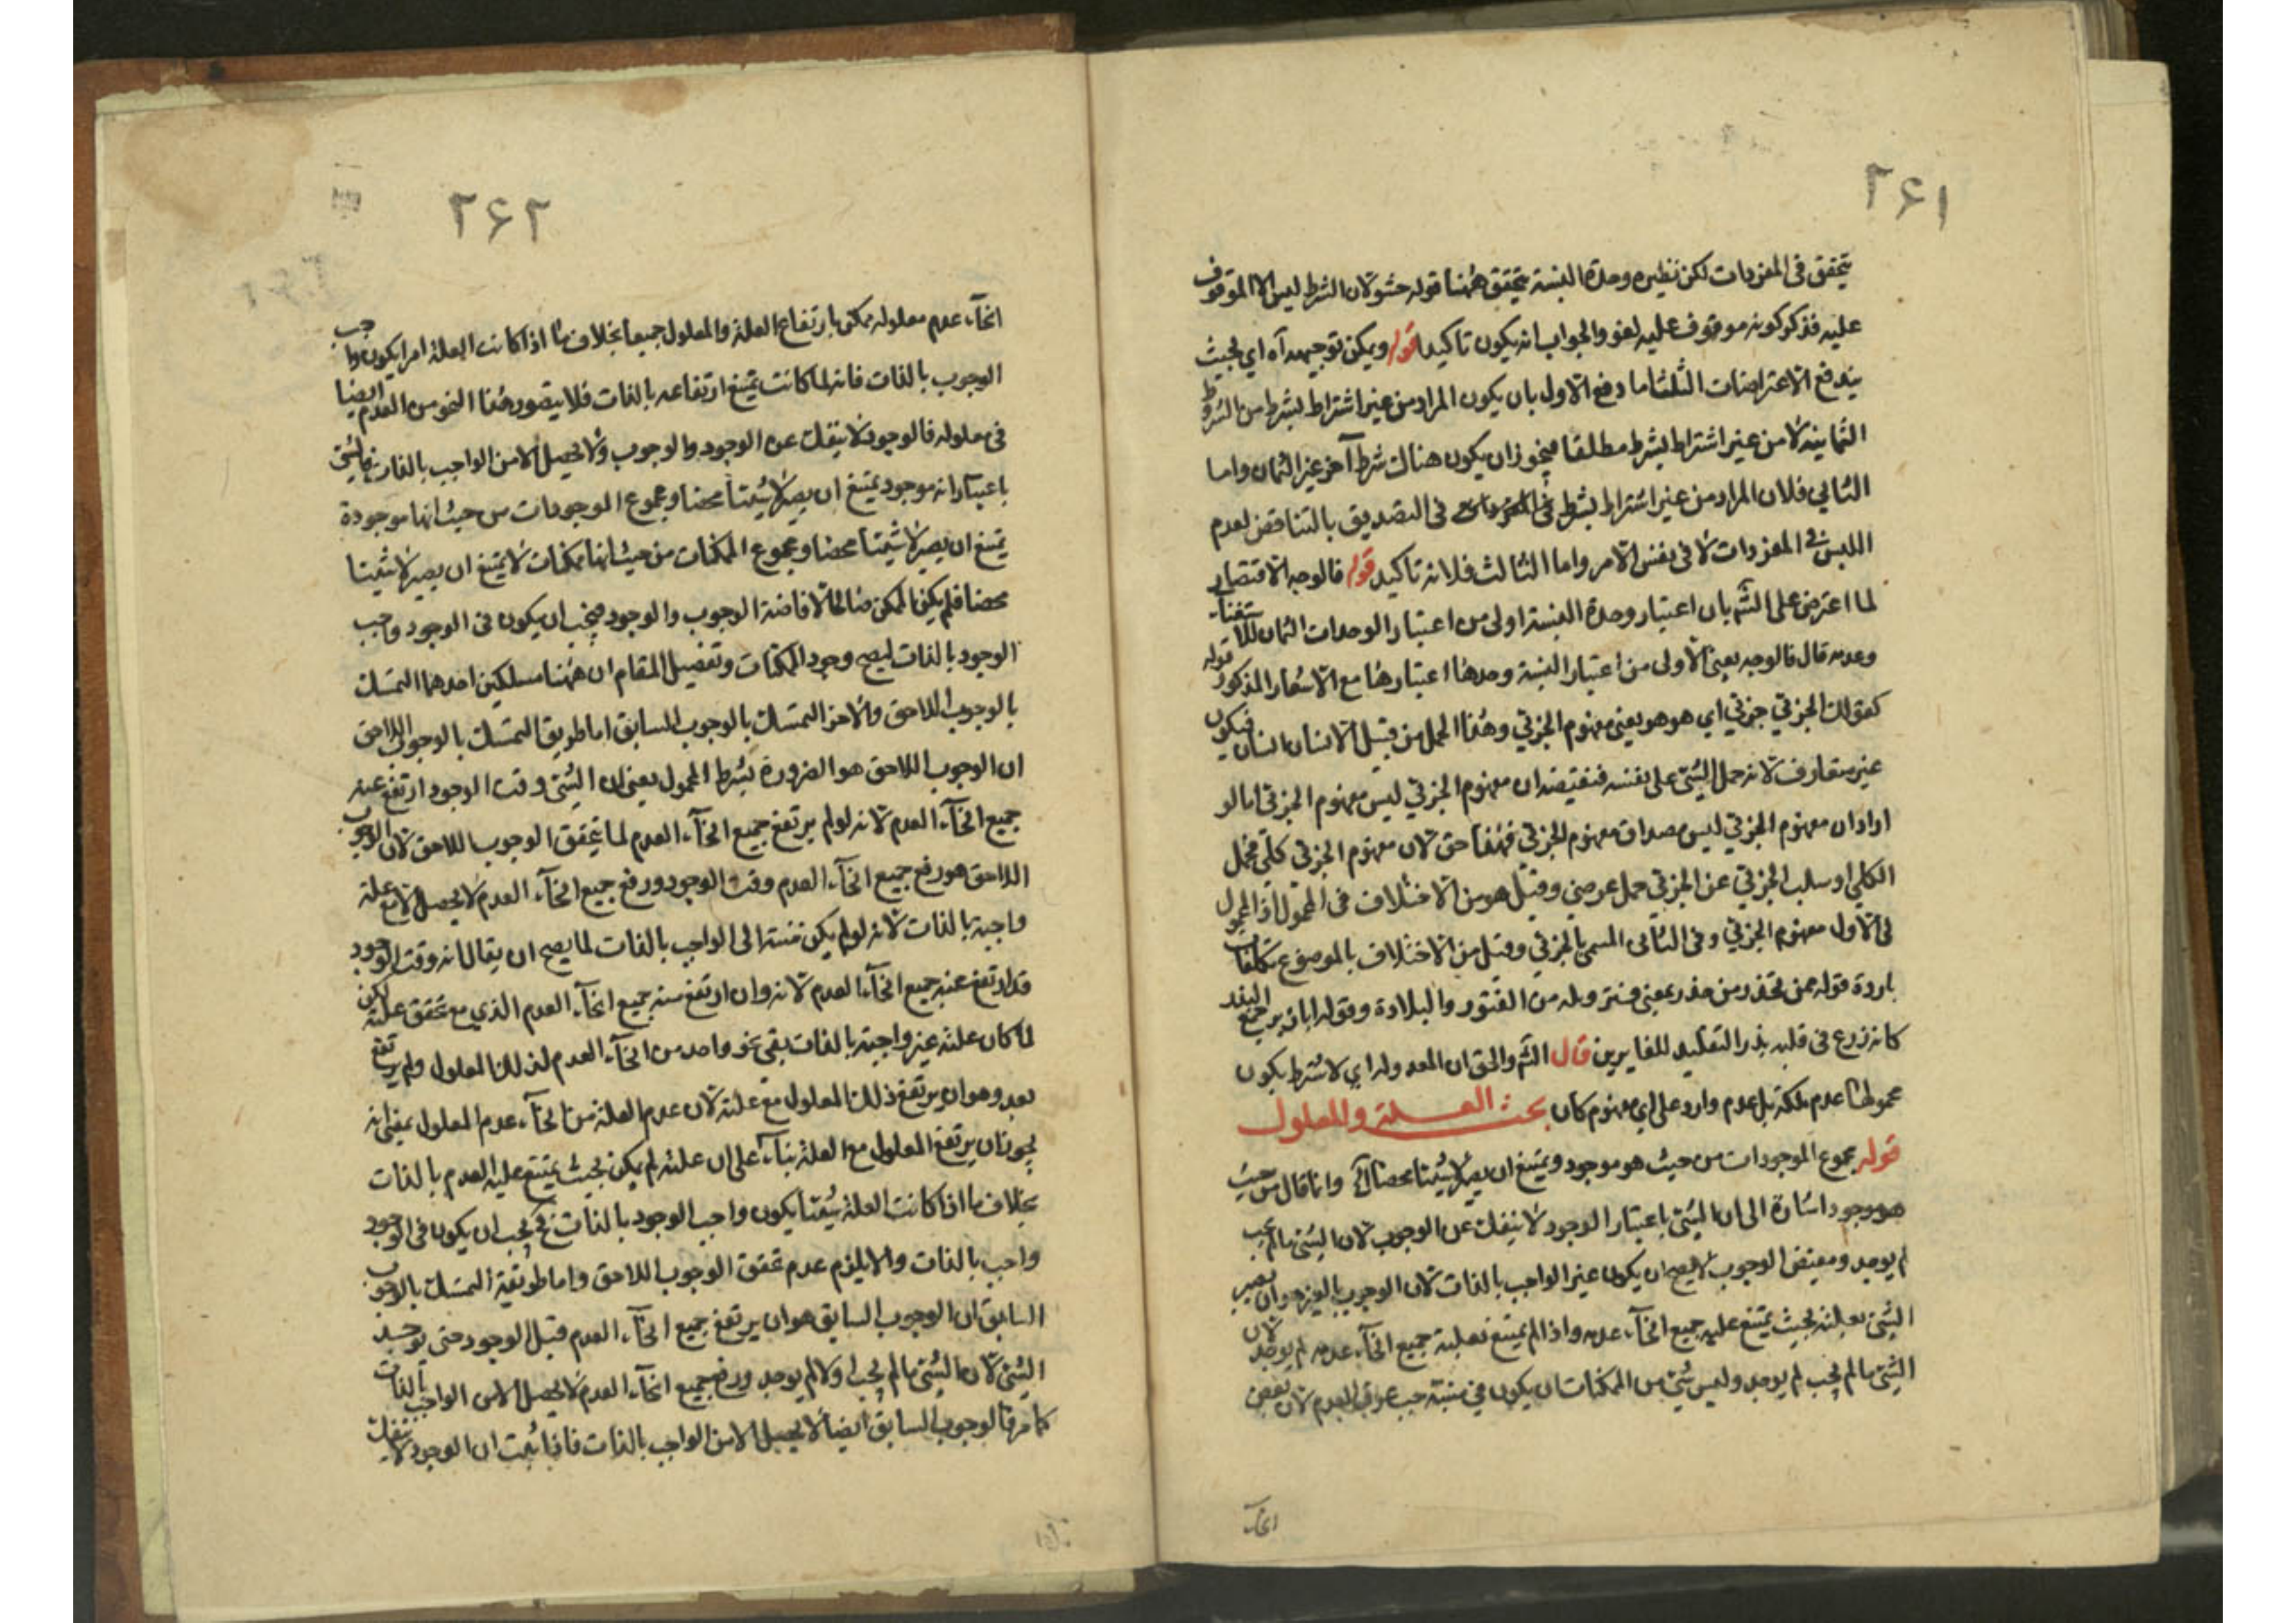 ۲۶۱
يتحقق فى المفردات لكن نظيره وحدة النسبة يتحقق ههنا قوله حشو لان الشرط ليس الا الموقوف
عليه فذكر كونه موقوف عليه لغو والجواب انه يكون تاكيدا قوله ويمكن توجيهه آه اي بحيث
يندفع الاعتراضات الثلثة اما دفع الاول بان يكون المراد من غير اشتراط بشرط من الشروط
الثمانية لا من غير اشتراط بشرط مطلقا فيجوز ان يكون هناك شرط آخر غير الثمان واما
الثاني فلان المراد من غير اشتراط بشرط فى التصديق بالتناقض لعدم
اللبس فى المفردات لا فى نفس الامر واما الثالث فلانه تاكيد قوله فالوجه الاقتصار
لما اعترض على الشم بان اعتبار وحدة النسبة اولى من اعتبار الوحدات الثمان للاستغناء
وعدمه قال فالوجه يعنى الاولى من اعتبار النسبة وحدها اعتبارها مع الاشعار المذكور قوله
كقولك الجزئي جزئي اي هو هو يعنى مفهوم الجزئي وهذا الحمل من قبيل الانسان انسان فيكون
غير متعارف لانه حمل الشئ على نفسه فنقيضه ان مفهوم الجزئي ليس مفهوم الجزئي اما لو
اراد ان مفهوم الجزئي ليس مصداق مفهوم الجزئي فهذا حق لان مفهوم الجزئي كلي فحمل
الكلي او سلب الجزئي عن الجزئي حمل عرضي وقيل هو من الاختلاف فى المحمول اذ المحمول
فى الاول مفهوم الجزئي وفى الثانى المسمى بالجزئي وقيل من الاختلاف بالموضوع تكلفات
باردة قوله ممن تحذر من حذر بمعنى فتر وبله من الفتور والبلادة وقوله ابان يرجع البذر
كانه زرع فى قلبه بذر التقليد للغايرين قال الشم والحق ان المعدولة اي لا شرط بكون
محمولها عدم ملكة بل عدم وارد على اي مفهوم كان بحث العلة والمعلول
قوله مجموع الموجودات من حيث هو موجود ويمتنع ان يصير لا شيئا محضا الخ وانما قال من حيث
هو موجود اشارة الى ان الشئ باعتبار الوجود لا ينفك عن الوجوب لان الشئ ما لم يجب
لم يوجد ومعتضى الوجوب لا يصح ان يكون غير الواجب بالذات لان الوجوب بالغير هو ان يصير
الشئ بعلته بحيث يمتنع عليه جميع انحآء عدمه واذا لم يمتنع بعلية جميع انحآء عدمه لم يوجد لان
الشئ ما لم يجب لم يوجد وليس شئ من الممكنات ان يكون فى منبته جب عرق للعدم لان بعض
انحآء
۲۶۲
انحآء عدم معلوله ممكن بارتفاع العلة والمعلول جميعا بخلاف ما اذا كانت العلة امرا يكون واجب
الوجوب بالذات فانه لما كانت يمتنع ارتفاعه بالذات فلا يتصور هذا النحو من العدم ايضا
فى معلوله فالوجود لا ينفك عن الوجود والوجوب ولا يحصل الا من الواجب بالذات فالشئ
باعتبار انه موجود يمتنع ان يصير لا شيئا محضا ومجموع الموجودات من حيث انها موجودة
يمتنع ان يصير لا شيئا محضا ومجموع الممكنات من حيث انها ممكنات لا يمتنع ان يصير لا شيئا
محضا فلم يكن الممكن صالحا لافاضة الوجوب والوجود فيجب ان يكون فى الوجود واجب
الوجود بالذات ليصح وجود الممكنات وتفصيل المقام ان ههنا مسلكين احدهما التمسك
بالوجوب اللاحق والاخر التمسك بالوجوب السابق اما طريق التمسك بالوجوب اللاحق
ان الوجوب اللاحق هو الضرورة بشرط المحمول يعنى ان الشئ وقت الوجود ارتفع عنه
جميع انحآء العدم لانه لو لم يرتفع جميع انحآء العدم لما تحقق الوجوب اللاحق لان الوجوب
اللاحق هو رفع جميع انحآء العدم وقت الوجود ورفع جميع انحآء العدم لا يحصل الا مع علة
واجبة بالذات لانه لو لم يكن منته الى الواجب بالذات لما يصح ان يقال انه وقت الوجود
قد ارتفع عنه جميع انحآء العدم لانه وان ارتفع منه جميع انحآء العدم الذي مع تحقق علته لكن
لما كان علته غير واجبة بالذات بقى نحو واحد من انحآء العدم لذلك المعلول ولم يرتفع
بعد وهو ان يرتفع ذلك المعلول مع علته لان عدم العلة من انحآء عدم المعلول بمعنى انه
يجوز ان يرتفع المعلول مع العلة بناءً على ان علته لم يكن بحيث يمتنع عليه العدم بالذات
بخلاف ما اذا كانت العلة شيئا يكون واجب الوجود بالذات فح يجب ان يكون فى الوجود
واجب بالذات والا يلزم عدم تحقق الوجوب اللاحق واما طريقة التمسك بالوجوب
السابق ان الوجوب السابق هو ان يرتفع جميع انحآء العدم قبل الوجود حتى توجد
الشئ لان الشئ ما لم يجب اولا لم يوجد ورفع جميع انحآء العدم لا يحصل الا من الواجب بالذات
كما مر فالوجوب السابق ايضا لا يحصل الا من الواجب بالذات فاذا ثبت ان الوجود لا ينفك